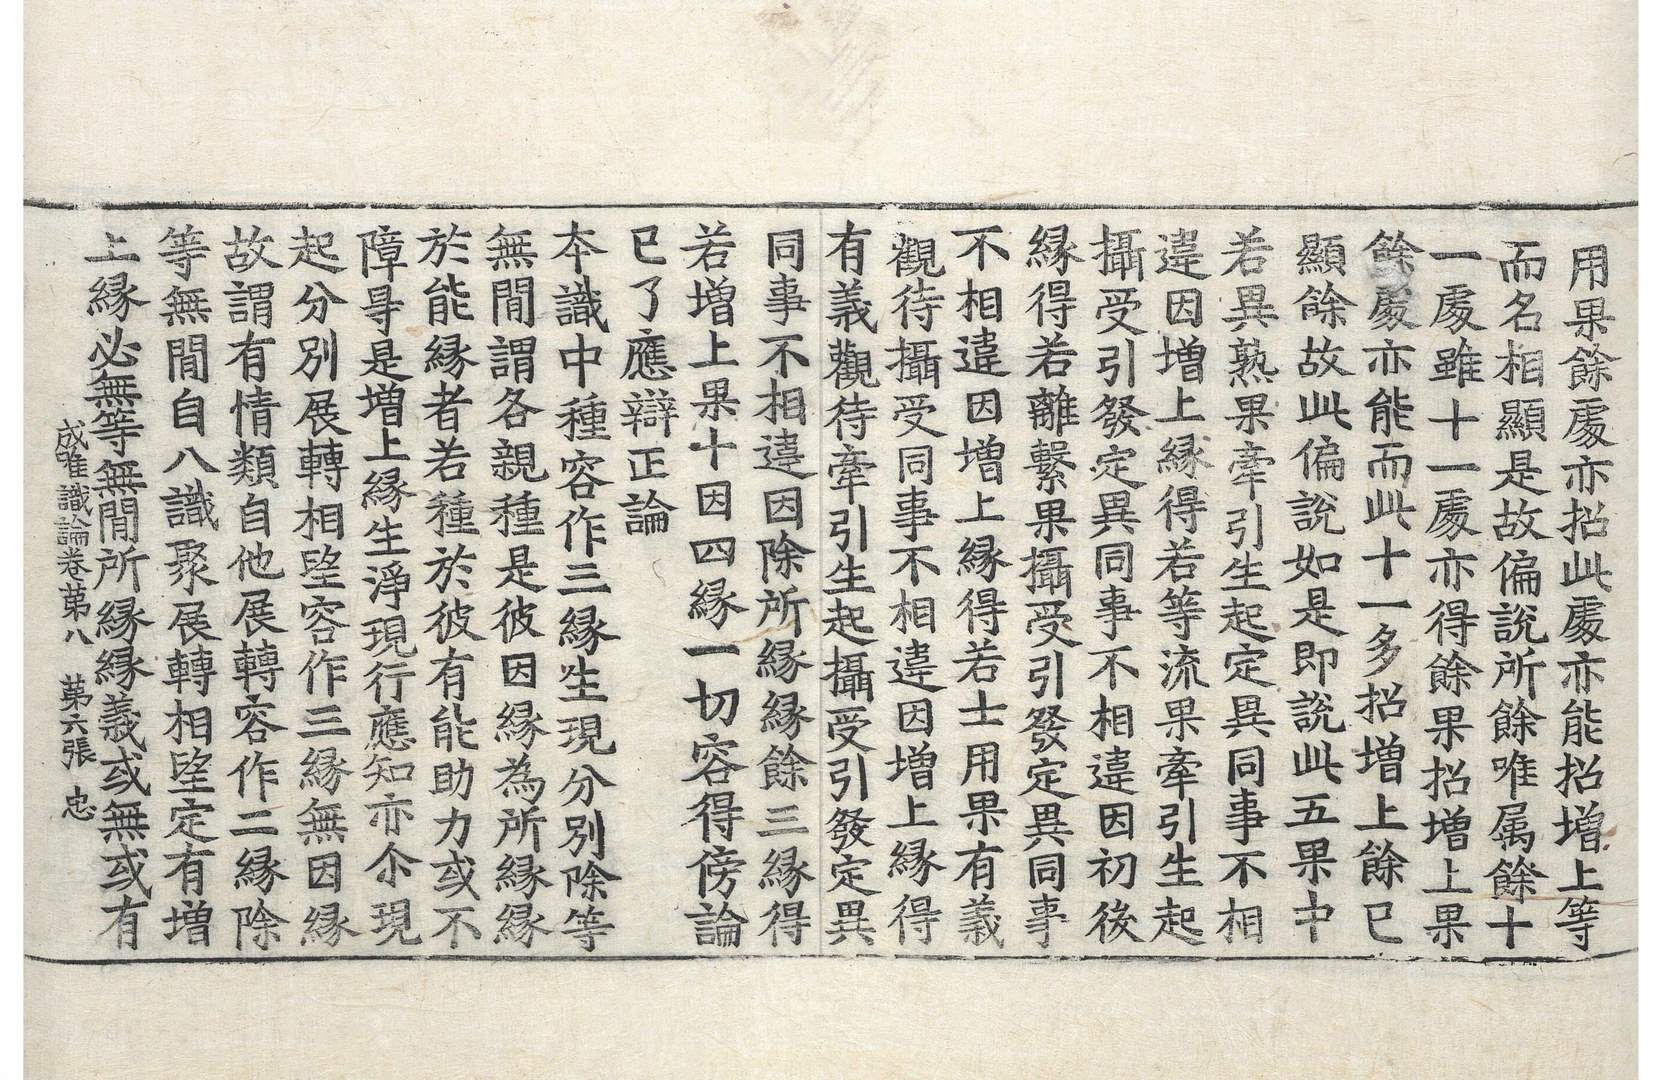 用果餘䖏亦招此䖏亦能招增上等
而名相顯是故偏說所餘唯属餘十
一䖏雖十一䖏亦得餘果招增上果
餘䖏亦能而此十一多招增上餘已
顯餘故此偏說如是即說此五果中
若異熟果牽引生起定異同事不相
違因增上緣得若等流果牽引生起
攝受引發定異同事不相違因初後
緣得若離繫果攝受引發定異同事
不相違因增上緣得若士用果有義
觀待攝受同事不相違因增上緣得
有義觀待牽引生起攝受引發定異
同事不相違因除所緣緣餘三緣得
若增上果十因四緣一切容得傍論
已了應辯正論
本識中種容作三緣生現分別除等
無間謂各親種是彼因緣為所緣緣
於能緣者若種於彼有能助力或不
障㝵是增上緣生淨現行應知亦尒現
起分別展轉相望容作三緣無因緣
故謂有情類自他展轉容作二緣除
等無間自八識聚展轉相望定有增
上緣必無等無間所緣緣義或無或有
成唯識論卷第八　第六張　忠